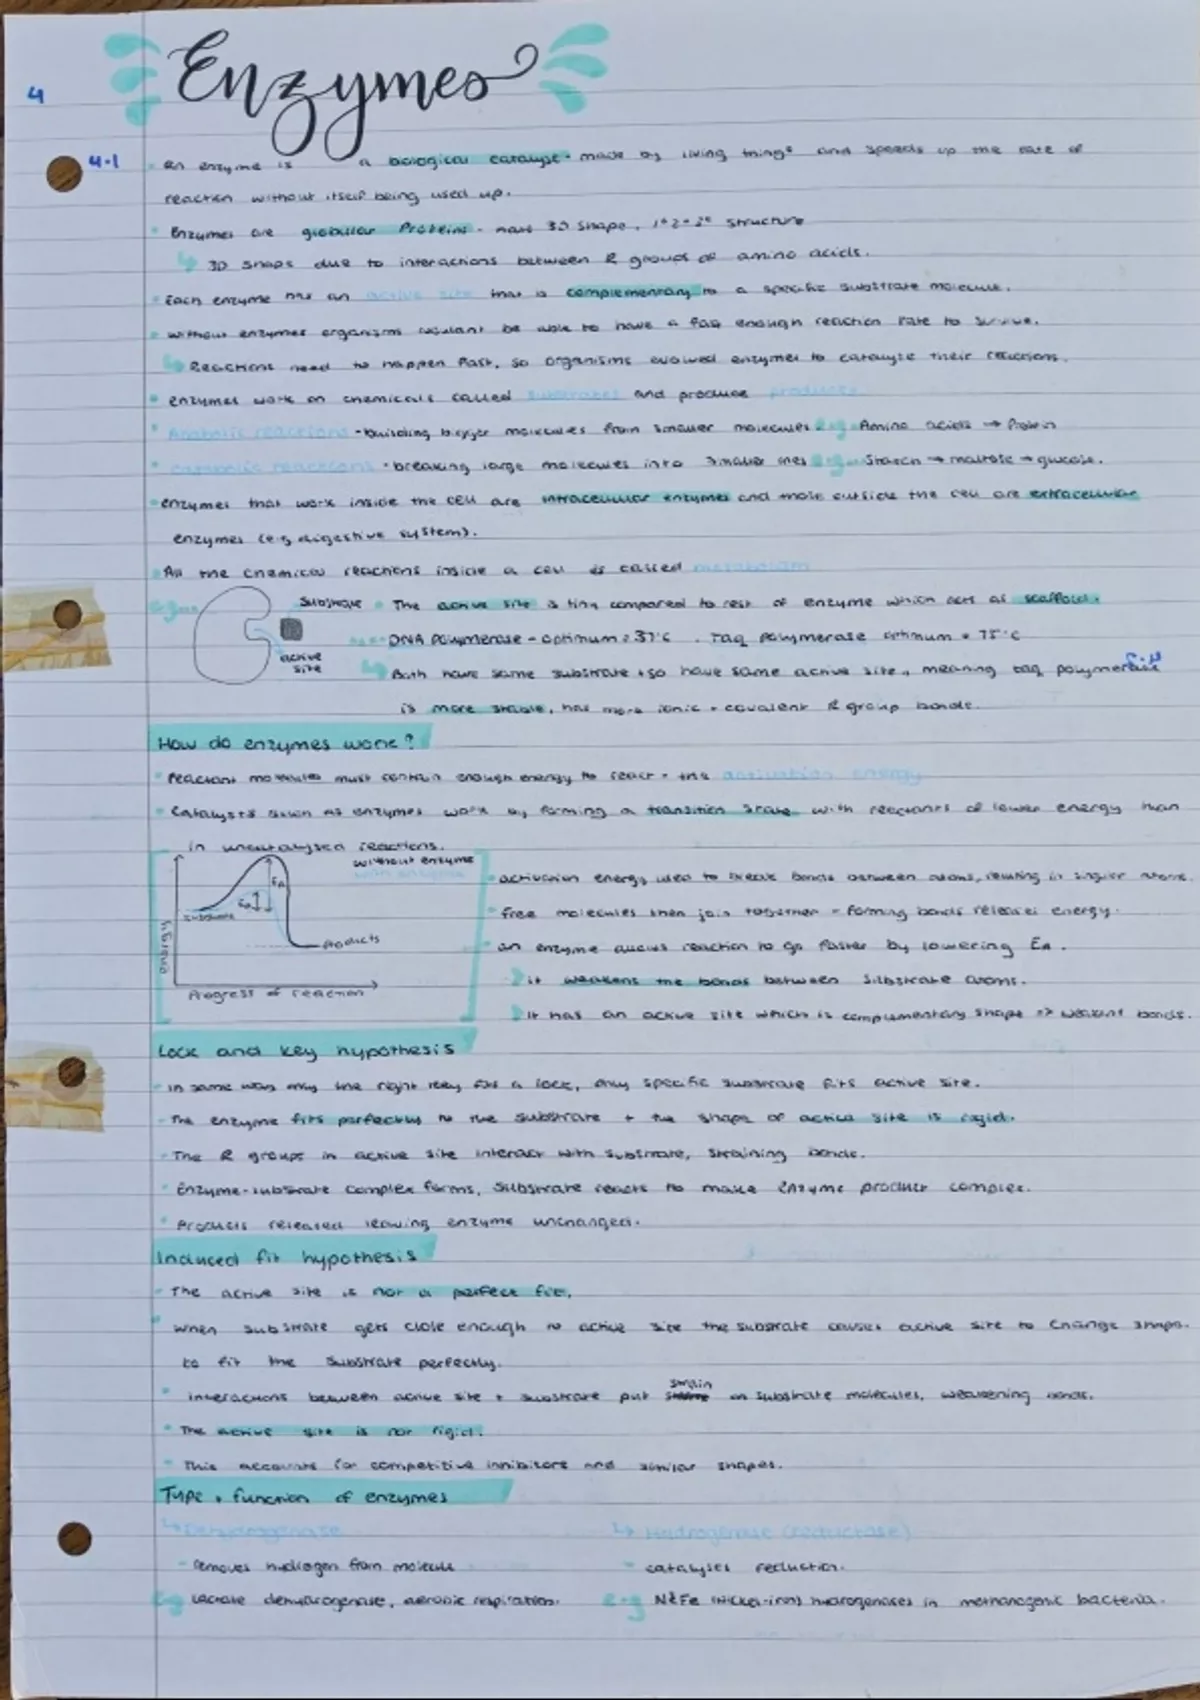 Enzymes
4
4.1
An enzyme is a biological catalyst - made by living things and speeds up the rate of
reaction without itself being used up.
Enzymes are globular Proteins - have 3D shape, 1° 2° 3° structure
↳ 3D shape due to interactions between R groups of amino acids.
Each enzyme has an active site that is complementary to a specific substrate molecule.
without enzymes organisms wouldn't be able to have a fast enough reaction rate to survive.
↳ Reactions need to happen fast, so organisms evolved enzymes to catalyse their reactions.
enzymes work on chemicals called substrates and produce products
Anabolic reactions - building bigger molecules from smaller molecules e.g. Amino acids → Protein
catabolic reactions - breaking large molecules into smaller ones e.g. Starch → maltose → glucose.
enzymes that work inside the cell are intracellular enzymes and those outside the cell are extracellular
enzymes (e.g digestive system).
All the chemical reactions inside a cell is called metabolism
substrate
active
site
The active site is tiny compared to rest of enzyme which acts as scaffold.
DNA Polymerase - optimum = 37°C. Taq polymerase optimum = 75°C
↳ Both have same substrate + so have same active site, meaning taq polymerase
is more stable, has more ionic + covalent R group bonds.
How do enzymes work?
reactant molecules must contain enough energy to react - the activation energy
Catalysts such as enzymes work by forming a transition state with reactants of lower energy than
in uncatalysed reactions.
without enzyme
with enzyme
EA
EA
substrate
Products
energy
Progress of reaction
activation energy used to break bonds between atoms, resulting in singular atoms.
free molecules then join together - forming bonds releases energy.
an enzyme allows reaction to go faster by lowering EA.
it weakens the bonds between substrate atoms.
it has an active site which is complementary shape => weaken bonds.
Lock and key hypothesis
in same way only the right key fits a lock, only specific substrate fits active site.
The enzyme fits perfectly to the substrate + the shape of active site is rigid.
The R groups in active site interact with substrate, straining bonds.
Enzyme-substrate complex forms, substrate reacts to make enzyme product complex.
Products released leaving enzyme unchanged.
Induced fit hypothesis
The active site is not a perfect fit.
when substrate gets close enough to active site the substrate causes active site to change shape.
to fit the substrate perfectly.
interactions between active site + substrate put strain on substrate molecules, weakening bonds.
The active site is not rigid.
This accounts for competitive inhibitors and similar shapes.
Type + function of enzymes
↳ Dehydrogenase
↳ Hydrogenase (reductase)
- removes hydrogen from molecule
- catalyses reduction.
e.g lactate dehydrogenase, aerobic respiration.
e.g NiFe (nickel-iron) hydrogenases in methanogenic bacteria.